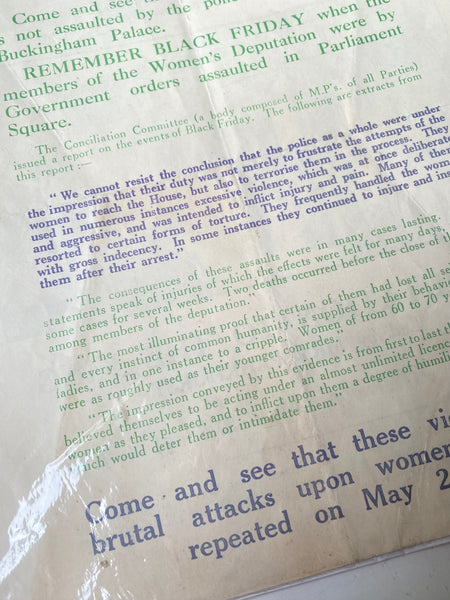 Come and see
is not assaulted by the
Buckingham Palace.
REMEMBER BLACK FRIDAY when the
members of the Women's Deputation were by
Government orders assaulted in Parliament
Square.
The Conciliation Committee (a body composed of M.P's. of all Parties)
issued a report on the events of Black Friday. The following are extracts from
this report :—
" We cannot resist the conclusion that the police as a whole were under
the impression that their duty was not merely to frustrate the attempts of the
women to reach the House, but also to terrorise them in the process. They
used in numerous instances excessive violence, which was at once deliberate
and aggressive, and was intended to inflict injury and pain. Many of them
resorted to certain forms of torture. They frequently handled the women
with gross indecency. In some instances they continued to injure and
them after their arrest."
" The consequences of these assaults were in many cases lasting.
statements speak of injuries of which the effects were felt for many days,
some cases for several weeks. Two deaths occurred before the close of
among members of the deputation."
" The most illuminating proof that certain of them had lost all
and every instinct of common humanity, is supplied by their
ladies, and in one instance to a cripple. Women of from 60 to 70
were as roughly used as their younger comrades."
" The impression conveyed by this evidence is from first to last
believed themselves to be acting under an almost unlimited
women as they pleased, and to inflict upon them a degree of
such would deter them or intimidate them."
Come and see that these
brutal attacks upon
repeated on May